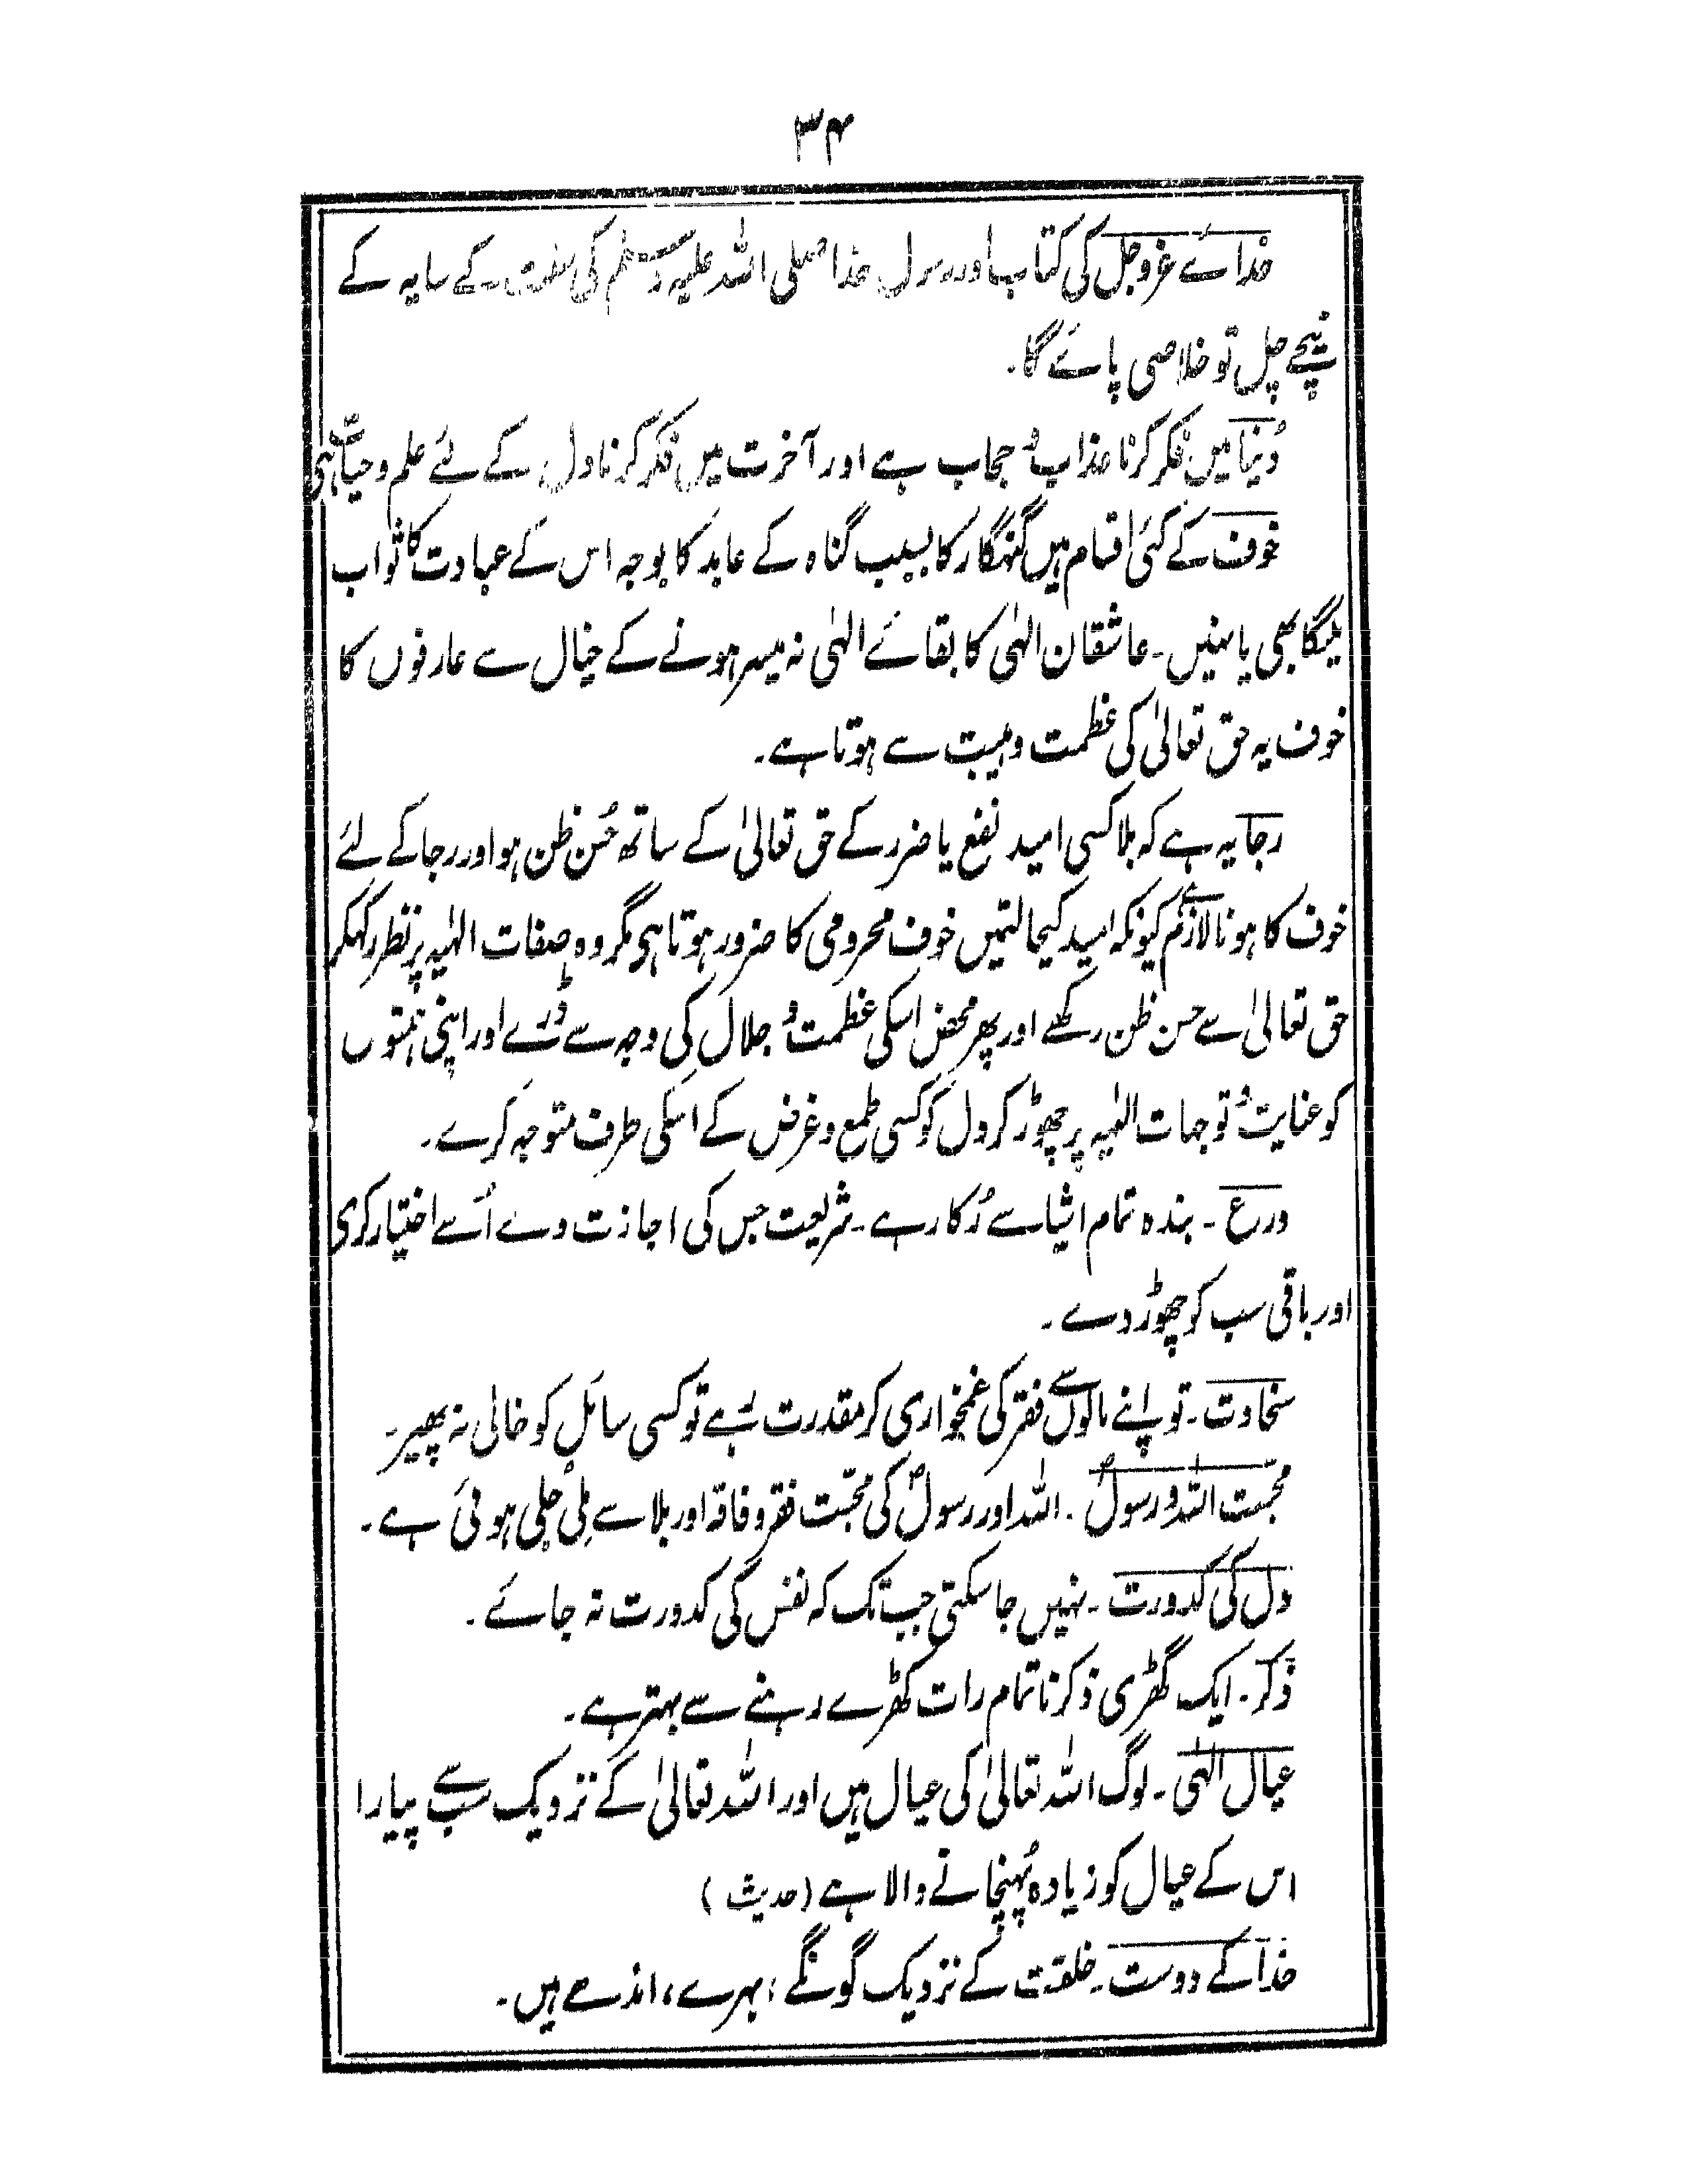 ۳۴
خدائے عزوجل کی کتاب اور رسول خدا صلی اللہ علیہ وسلم کی سنت کے سایہ کے
نیچے چل تو خلاصی پائے گا۔
دُنیا میں فکر کرنا عذاب و حجاب ہے اور آخرت میں فکر کرنا دل کے لئے علم و حیات ہی
خوف کے کئی اقسام ہیں گنہگار کا بسبب گناہ کے عابد کا بوجہ اس کے عبادت کا ثواب
ملیگا بھی یا نہیں۔ عاشقان الہٰی کا بقائے الہٰی نہ میسر ہونے کے خیال سے عارفوں کا
خوف یہ حق تعالیٰ کی عظمت و ہیبت سے ہوتا ہے۔
رجا یہ ہے کہ بلا کسی امید نفع یا ضرر کے حق تعالیٰ کے ساتھ حُسن ظن ہو اور رجا کے لئے
خوف کا ہونا لازم ہے کیونکہ امید کیحالتمیں خوف محرومی کا ضرور ہوتا ہی مگر وہ صفات الہٰیہ پر نظر رکھکر
حق تعالیٰ سے حسن ظن رکھے اور پھر محض اسکی عظمت و جلال کی وجہ سے ڈرے اور اپنی ہمتوں
کو عنایت و توجہات الہٰیہ پر چھوڑ کر دل کو کسی طمع و غرض کے اسکی طرف متوجہ کرے۔
ورع ۔ بندہ تمام اشیا سے رُکا رہے۔ شریعت جس کی اجازت دے اُسے اختیار کری
اور باقی سب کو چھوڑ دے ۔
سخاوت ۔ تو اپنے مالوں سے فقر کی غمخواری کر مقدرت ہے تو کسی سائل کو خالی نہ پھیر۔
محبّت اللہ و رسولؐ ۔ اللہ اور رسولؐ کی محبّت فقر و فاقہ اور بلا سے مِلی جُلی ہوئی ہے۔
دل کی کدورت ۔ نہیں جا سکتی جبتک کہ نفس کی کدورت نہ جائے ۔
ذکر ۔ ایک گھڑی ذکر نا تمام رات کھڑے رہنے سے بہتر ہے۔
عیال الہٰی ۔ لوگ اللہ تعالیٰ کی عیال ہیں اور اللہ تعالیٰ کے نزدیک سب سے پیارا
اس کے عیال کو زیادہ پُہنچانے والا ہے (حدیث)
خدا کے دوست ۔ خلقت کے نزدیک گونگے، بہرے، اندھے ہیں۔